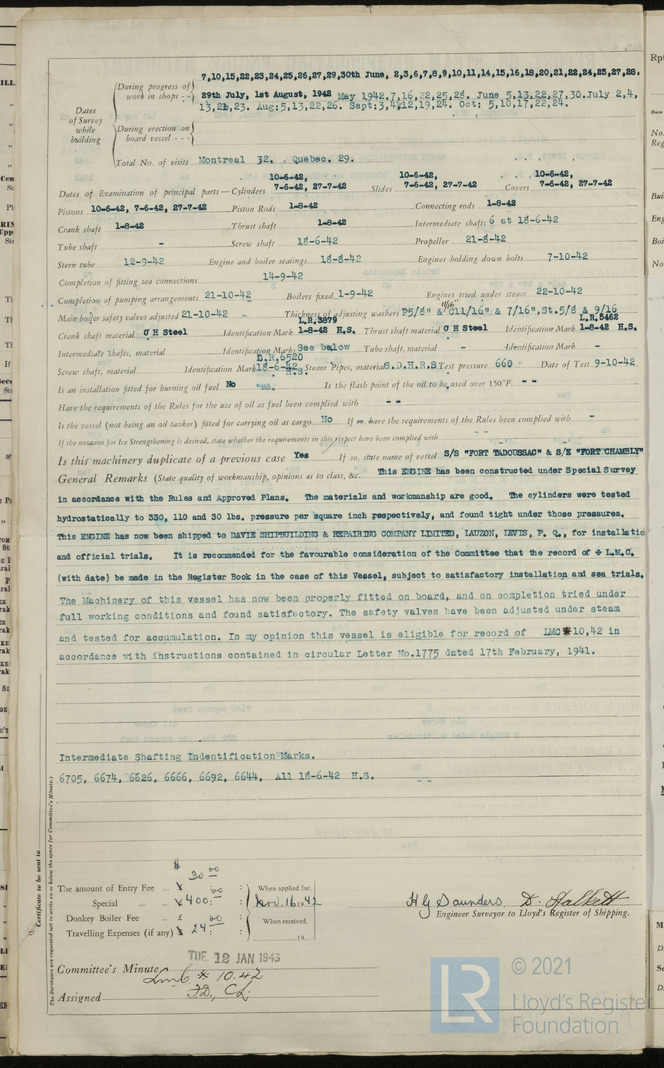 7,10,15,22,23,24,25,26,27,29,30th June, 2,3,6,7,8,9,10,11,14,15,16,18,20,21,22,24,25,27,28,
During progress of work in shops - - 29th July, 1st August, 1942 May 1942.7,16,22,25,28. June 5,13,22,27,30.July 2,4,
13,2 ,23. Aug:5,13,22,26. Sept:3,4,12,19,24. Oct: 5,10,17,22,24.
Dates of Survey while building
During erection on board vessel - - -
Total No. of visits Montreal 32. Quebec. 29.
10-6-42, 10-6-42, 10-6-42,
Dates of Examination of principal parts—Cylinders 7-6-42, 27-7-42 Slides 7-6-42, 27-7-42 Covers 7-6-42, 27-7-42
Pistons 10-6-42, 7-6-42, 27-7-42 Piston Rods 1-8-42 Connecting rods 1-8-42
Crank shaft 1-8-42 Thrust shaft 1-8-42 Intermediate shafts 6 at 18-6-42
Tube shaft - Screw shaft 18-6-42 Propeller 21-8-42
Stern tube 12-9-42 Engine and boiler seatings 18-8-42 Engines holding down bolts 7-10-42
Completion of fitting sea connections 14-9-42
Completion of pumping arrangements 21-10-42 Boilers fixed 1-9-42 Engines tried under steam 22-10-42
Main boiler safety valves adjusted 21-10-42 - Thickness of adjusting washers P5/8" & C11/16" & 7/16", St.5/8 & 9/16
L.R.3879 L.R.5462
Crank shaft material O H Steel Identification Mark 1-8-42 H.S. Thrust shaft material O H Steel Identification Mark 1-8-42 H.S.
Intermediate shafts, material Identification Marks See below Tube shaft, material - Identification Mark -
L.R.6520
Screw shaft, material Identification Mark 18-6-42 H.S. Steam Pipes, material S.D.H.R.S Test pressure 660 Date of Test 9-10-42
Is an installation fitted for burning oil fuel No Is the flash point of the oil to be used over 150°F. - -
Have the requirements of the Rules for the use of oil as fuel been complied with - -
Is the vessel (not being an oil tanker) fitted for carrying oil as cargo No If so, have the requirements of the Rules been complied with -
If the notation for Ice Strengthening is desired, state whether the requirements in this respect have been complied with
Is this machinery duplicate of a previous case Yes If so, state name of vessel S/S "FORT TADOUSSAC" & S/S "FORT CHAMBLY"
General Remarks (State quality of workmanship, opinions as to class, &c. This ENGINE has been constructed under Special Survey
in accordance with the Rules and Approved Plans. The materials and workmanship are good. The cylinders were tested
hydrostatically to 330, 110 and 30 lbs. pressure per square inch respectively, and found tight under those pressures.
This ENGINE has now been shipped to DAVIE SHIPBUILDING & REPAIRING COMPANY LIMITED, LAUZON, LEVIS, P. Q., for installatio
and official trials. It is recommended for the favourable consideration of the Committee that the record of + L.M.C.
(with date) be made in the Register Book in the case of this Vessel, subject to satisfactory installation and sea trials.
The Machinery of this vessel has now been properly fitted on board, and on completion tried under
full working conditions and found satisfactory. The safety valves have been adjusted under steam
and tested for accumulation. In my opinion this vessel is eligible for record of LMC*10,42 in
accordance with instructions contained in circular Letter No.1775 dated 17th February, 1941.
Intermediate Shafting Indentification Marks.
6705, 6674, 6626, 6666, 6692, 6644, All 18-6-42 H.S.
Certificate to be sent to
(The Surveyors are requested not to write on or below the space for Committee's Minute.)
$
The amount of Entry Fee ... 30 00 When applied for,
Special ... 400: 00 Nov. 16 1942
Donkey Boiler Fee ... £ When received,
Travelling Expenses (if any) 24 00 19
H G Saunders. D.
Engineer Surveyor to Lloyd's Register of Shipping.
TUE 12 JAN 1943
Committee's Minute Lmc * 10.42
Assigned FD, CL.
LR © 2021
Lloyd's Register
Foundation